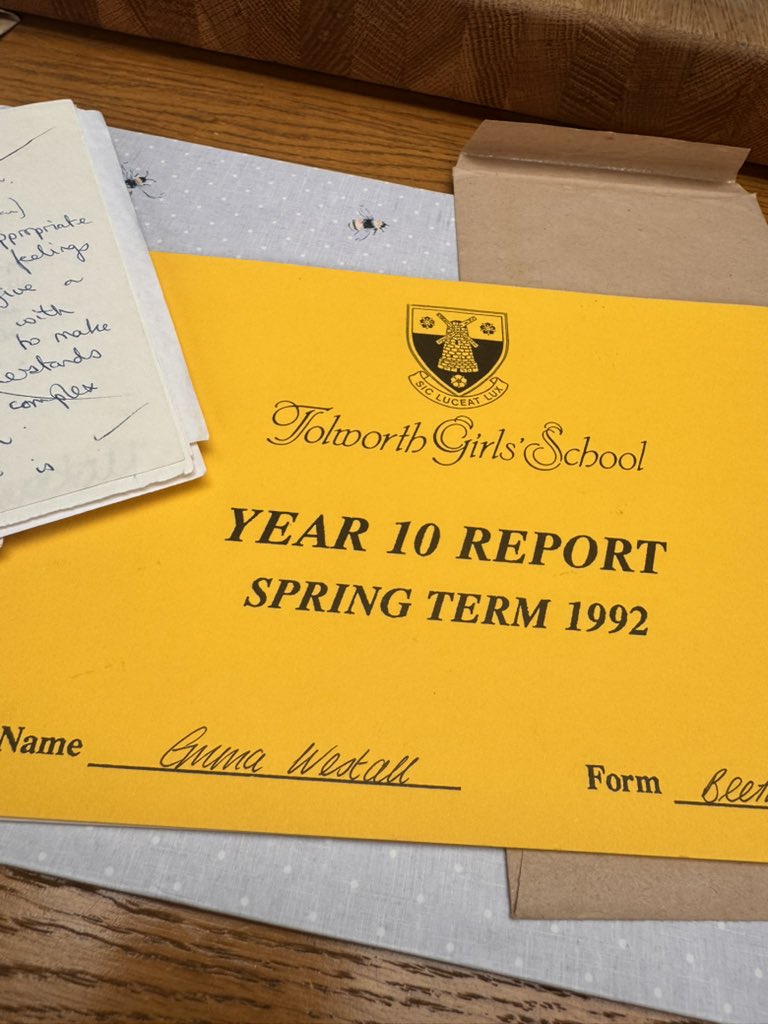 appropriate
feelings
give a
with
to make
complex
is
SIC LUCEAT LUX
Tolworth Girls' School
YEAR 10 REPORT
SPRING TERM 1992
Name Emma Westall
Form